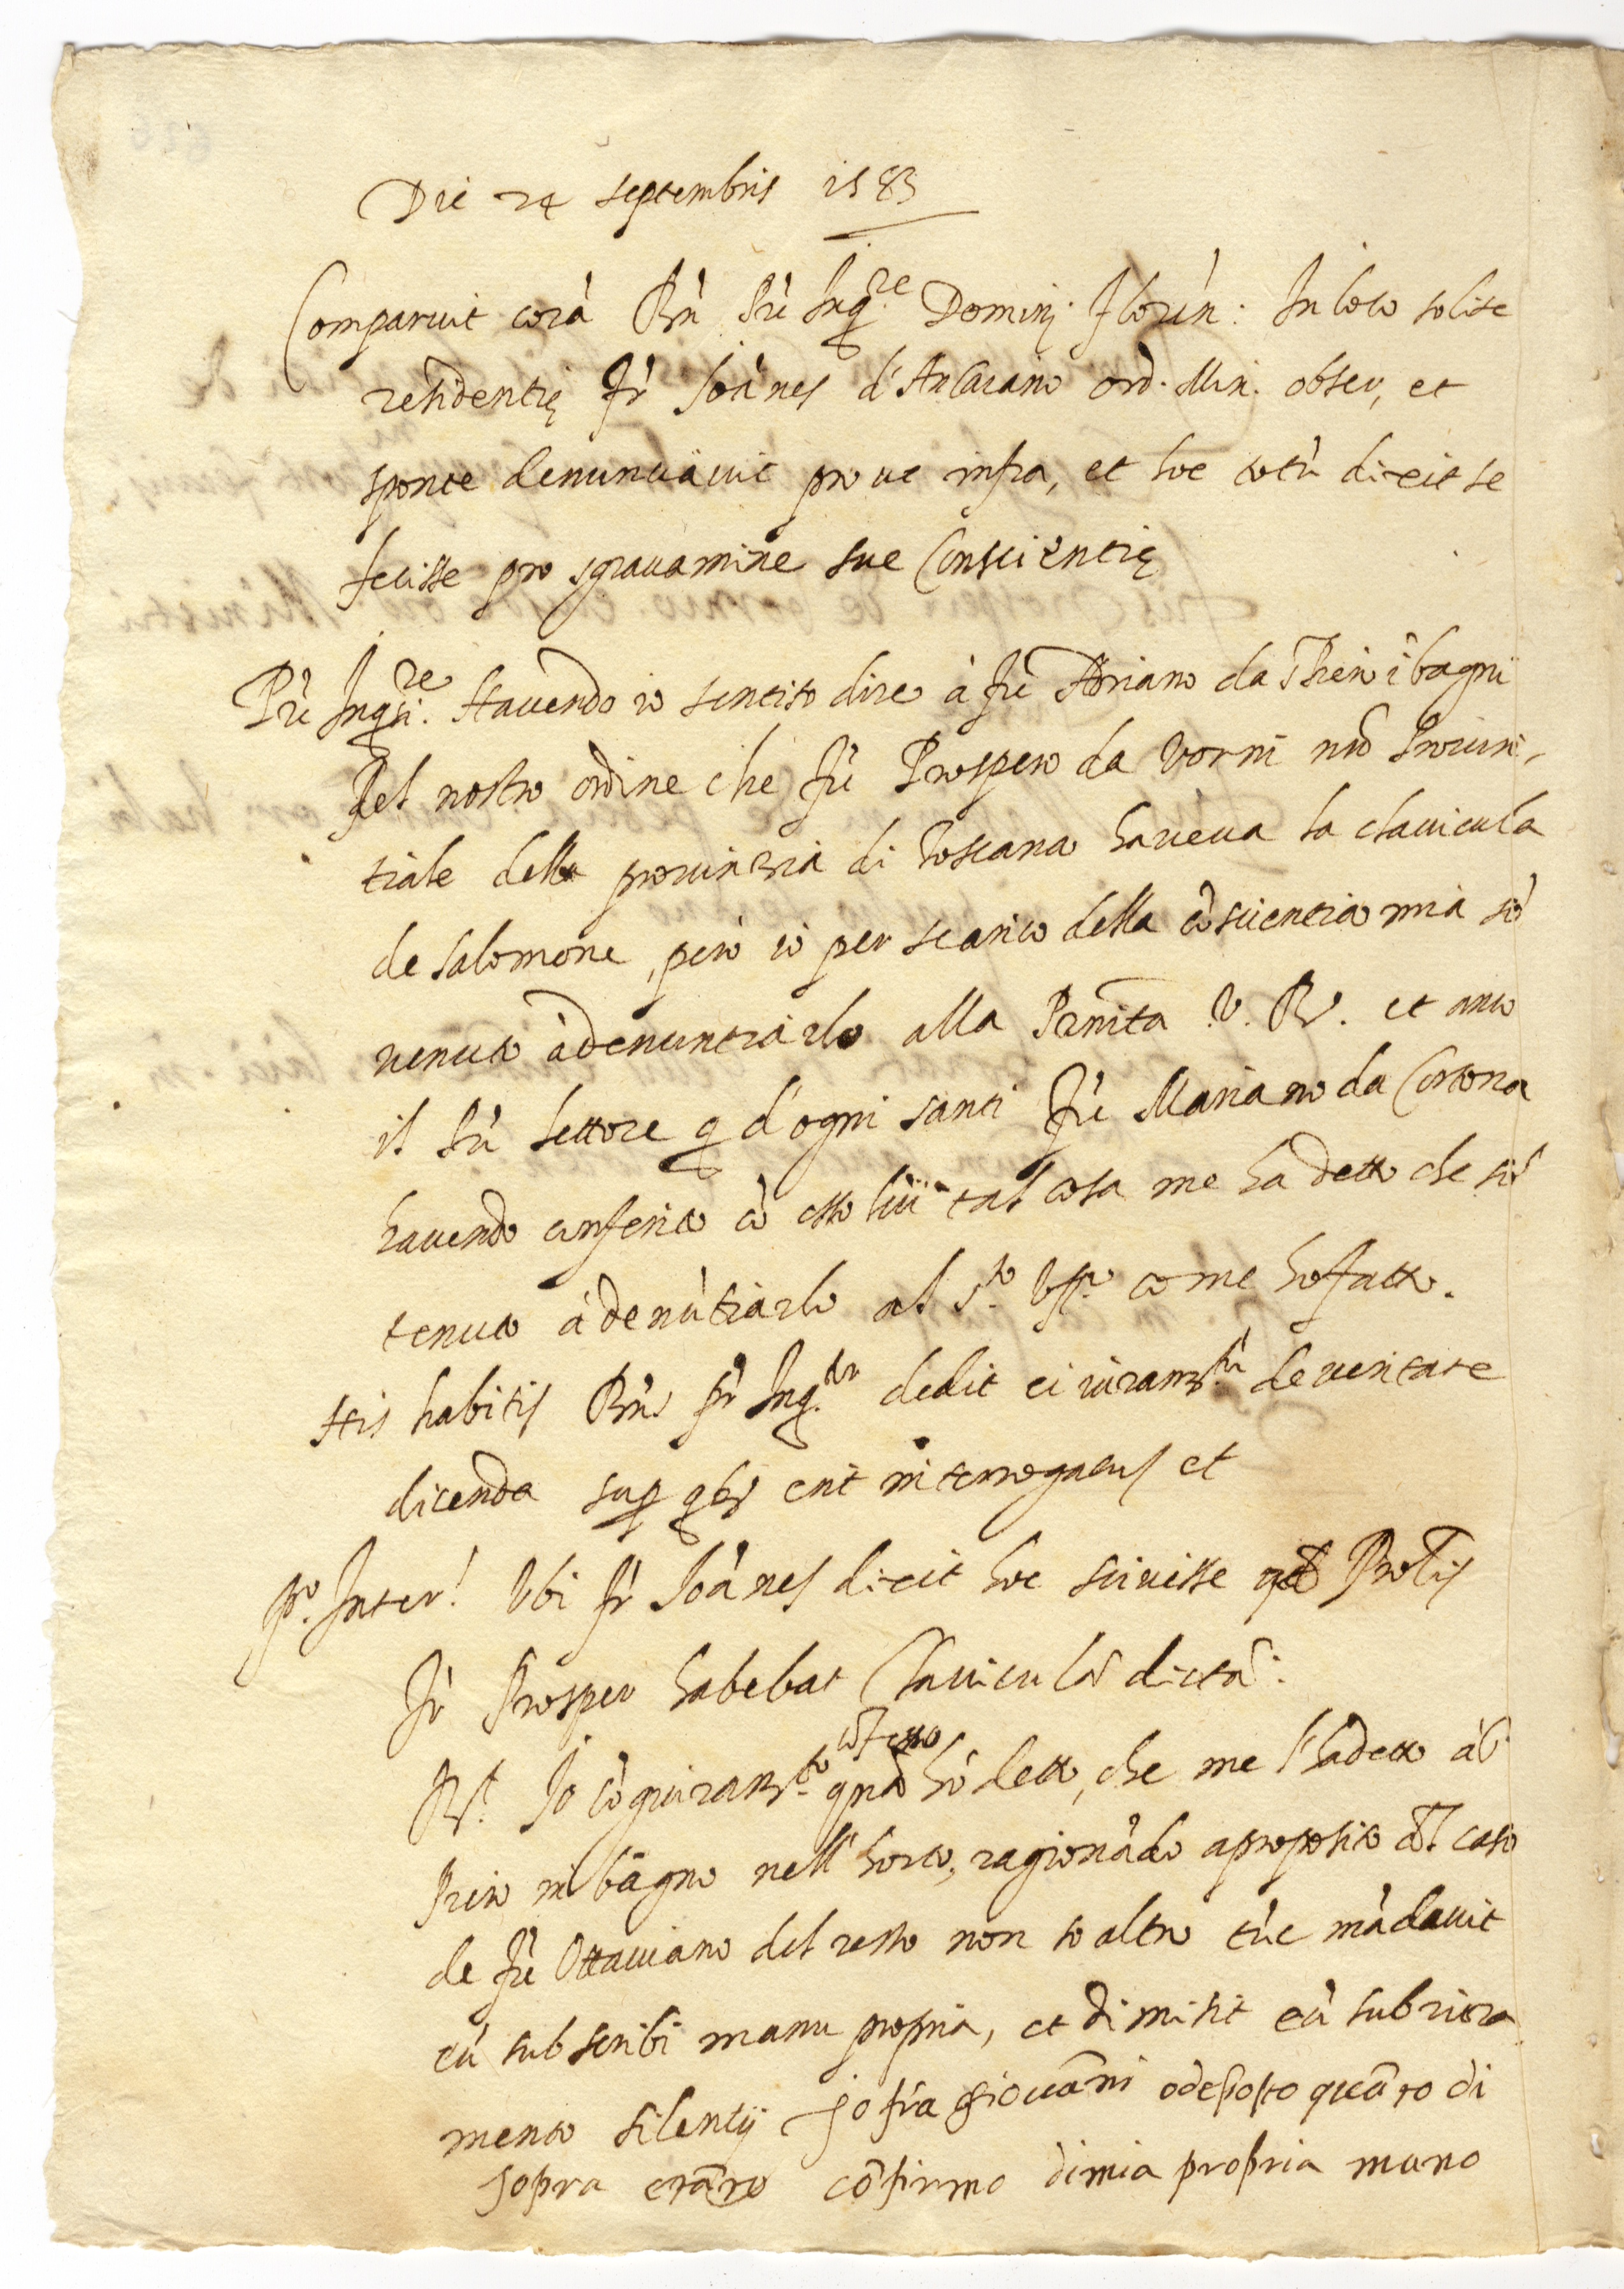 Die 24 septembris 1583
Comparuit corā Rn̄ Prē Inq.re Dominij Floren: In loco solite
residentię Fr̄ Joānes d'Anchiano ord. Min. obser, et
sponte denuntiavit pro ut infra, et hoc totū dixit se
fecisse pro sgravamine sue Conscientię
Prē Inqri.re Havendo io sentito dire à frē Adriano da i bagni
del nostro ordine che frē Prospero da Vorni nrō Provin,
tiale della provinzia di Toscana haveva la clavicula
de Salomone, però io per scarico della cōscientia mia sō
venuto à denuntiarlo alla Pr̄nita V. R. et anco
il Prē lettore q d'ogni santi Frē Mariano da Cortona
havendo conferito cō esso lui tal cosa me ha detto che sō
tenuto à denūtiarlo al S.to Uff.o come ho fatto.
His habitis Rn̄s pr̄ Inq.tor dedit ei iuram.tū de veritate
dicenda sup qbs erit interrogatus et
P.o Inter! Ubi fr̄ Joānes dixit hoc scivisse qd
Fr̄ Prosper habebat Claviculā dictā:
R.t Io cō giuram.to cōfesso qnto hò detto, che me l'ha detto
in bagno nell'horto, ragionādo a proposito del caso
de frē Ottaviano del resto non so altro tūc mādavit
eū subscribi manu propria, et dimisit eū sub iura
mento silentij Jo fra giovāni o deposto quāto di
sopra e cōfirmo di mia propria mano